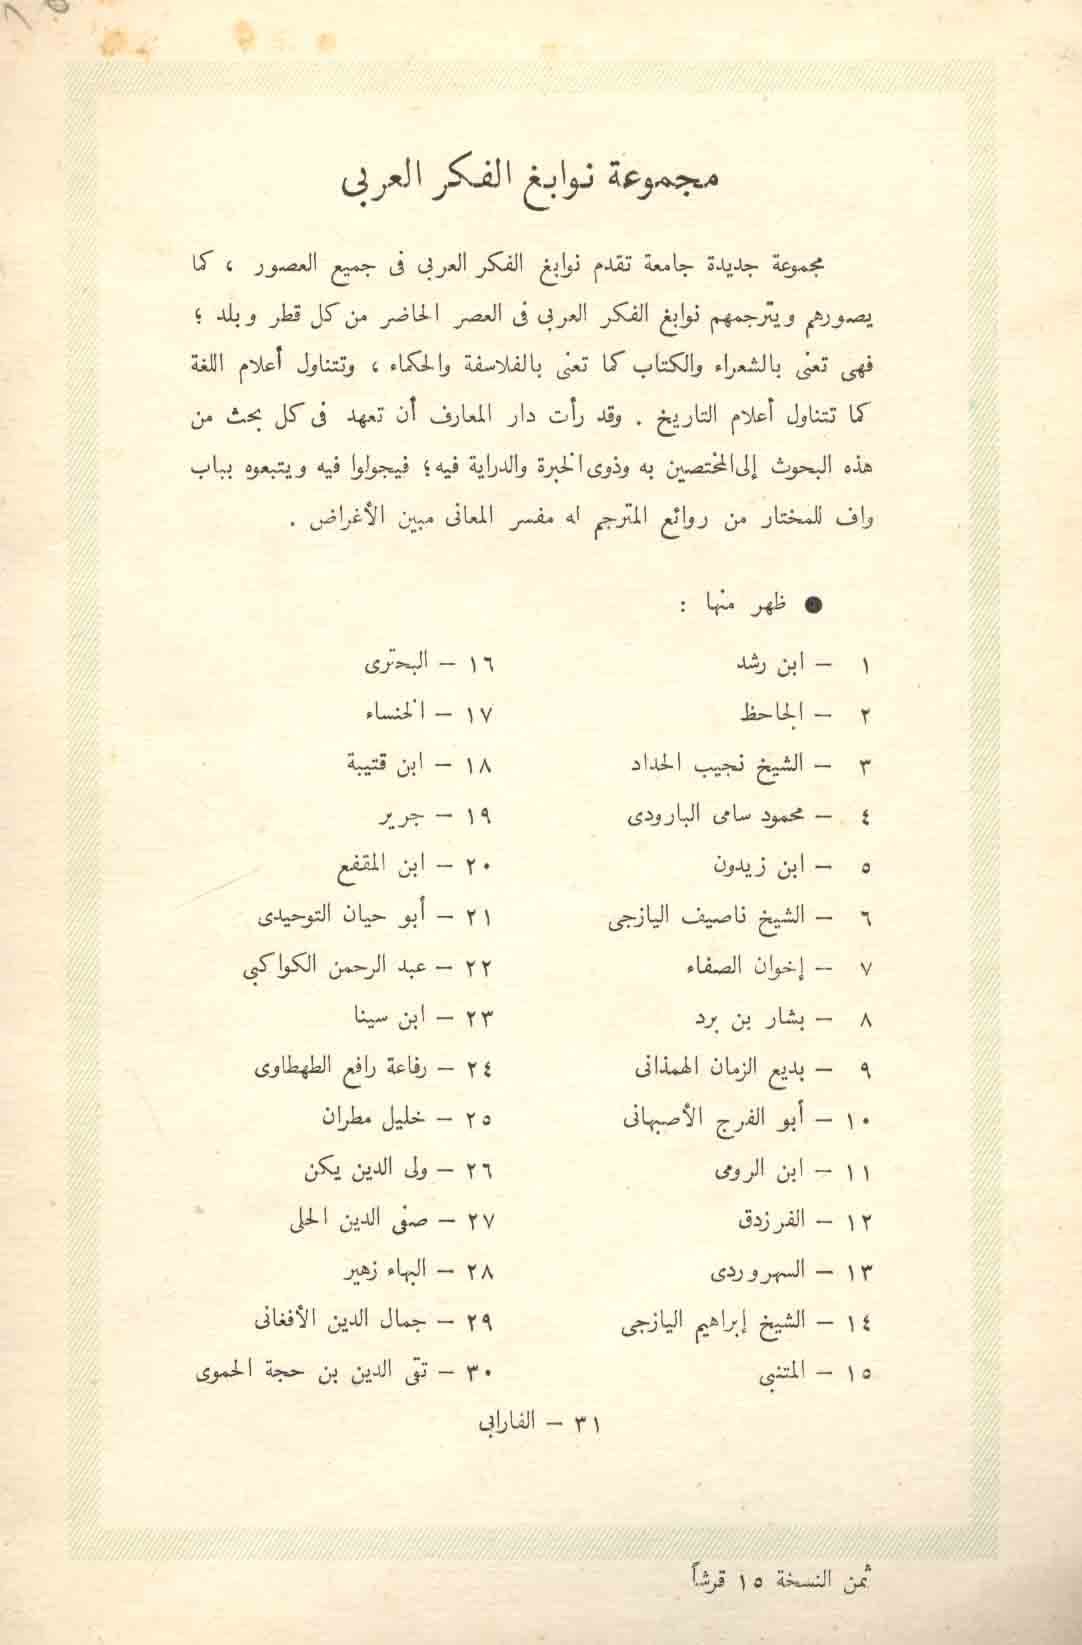 مجموعة نوابغ الفكر العربى
مجموعة جديدة جامعة تقدم نوابغ الفكر العربى فى جميع العصور ، كما
يصورهم ويترجمهم نوابغ الفكر العربى فى العصر الحاضر من كل قطر وبلد ؛
فهى تعنى بالشعراء والكتاب كما تعنى بالفلاسفة والحكماء ، وتتناول أعلام اللغة
كما تتناول أعلام التاريخ . وقد رأت دار المعارف أن تعهد فى كل بحث من
هذه البحوث إلى المختصين به وذوى الخبرة والدراية فيه ؛ فيجولوا فيه ويتبعوه بباب
واف للمختار من روائع المترجم له مفسر المعانى مبين الأغراض .
● ظهر منها :
١ – ابن رشد
٢ – الجاحظ
٣ – الشيخ نجيب الحداد
٤ – محمود سامى البارودى
٥ – ابن زيدون
٦ – الشيخ ناصيف اليازجى
٧ – إخوان الصفاء
٨ – بشار بن برد
٩ – بديع الزمان الهمذانى
١٠ – أبو الفرج الأصبهانى
١١ – ابن الرومى
١٢ – الفرزدق
١٣ – السهروردى
١٤ – الشيخ إبراهيم اليازجى
١٥ – المتنبى
١٦ – البحترى
١٧ – الخنساء
١٨ – ابن قتيبة
١٩ – جرير
٢٠ – ابن المقفع
٢١ – أبو حيان التوحيدى
٢٢ – عبد الرحمن الكواكبى
٢٣ – ابن سينا
٢٤ – رفاعة رافع الطهطاوى
٢٥ – خليل مطران
٢٦ – ولى الدين يكن
٢٧ – صفى الدين الحلى
٢٨ – البهاء زهير
٢٩ – جمال الدين الأفغانى
٣٠ – تقى الدين بن حجة الحموى
٣١ – الفارابى
ثمن النسخة ١٥ قرشاً